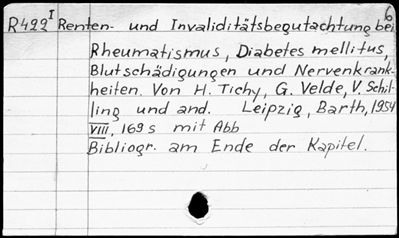 6
R492 I Renten- und Invaliditätsbegutachtung bei
Rheumatismus, Diabetes mellitus,
Blutschädigungen und Nervenkrank-
heiten. Von H. Tichy, G. Velde, V. Schil-
ling und and. Leipzig, Barth, 1954
VIII, 169 s mit Abb
Bibliogr. am Ende der Kapitel.